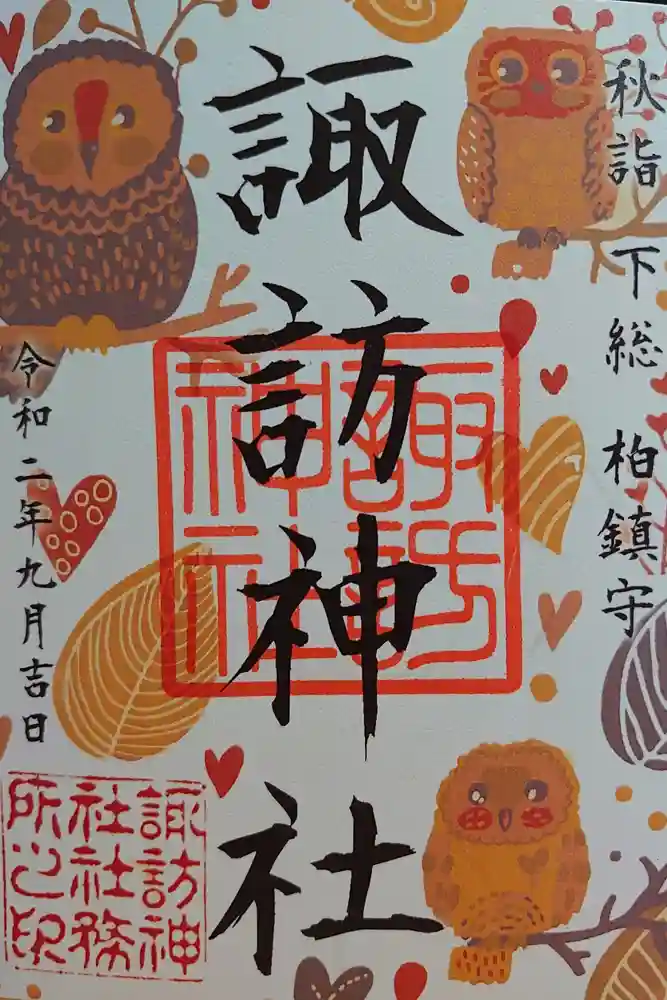 秋詣 下総 柏鎮守
諏訪神社
諏訪
神社
令和二年九月吉日
諏訪神
社社務
所之印